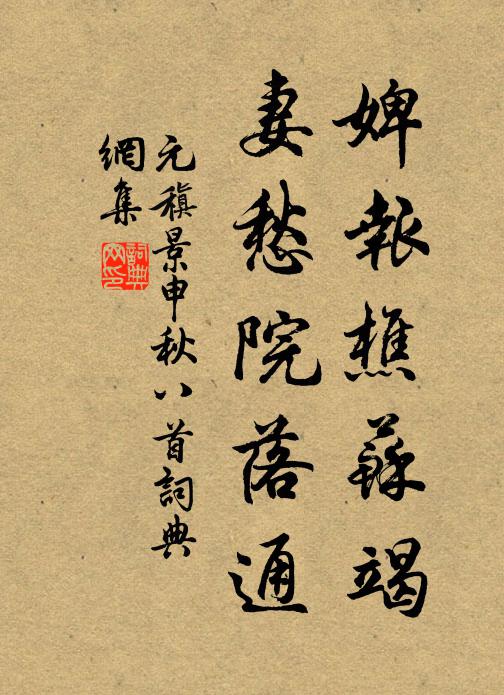 婢報樵蘇竭
妻愁院落通
元稹景申秋八首詞典
網集
詞典
网印